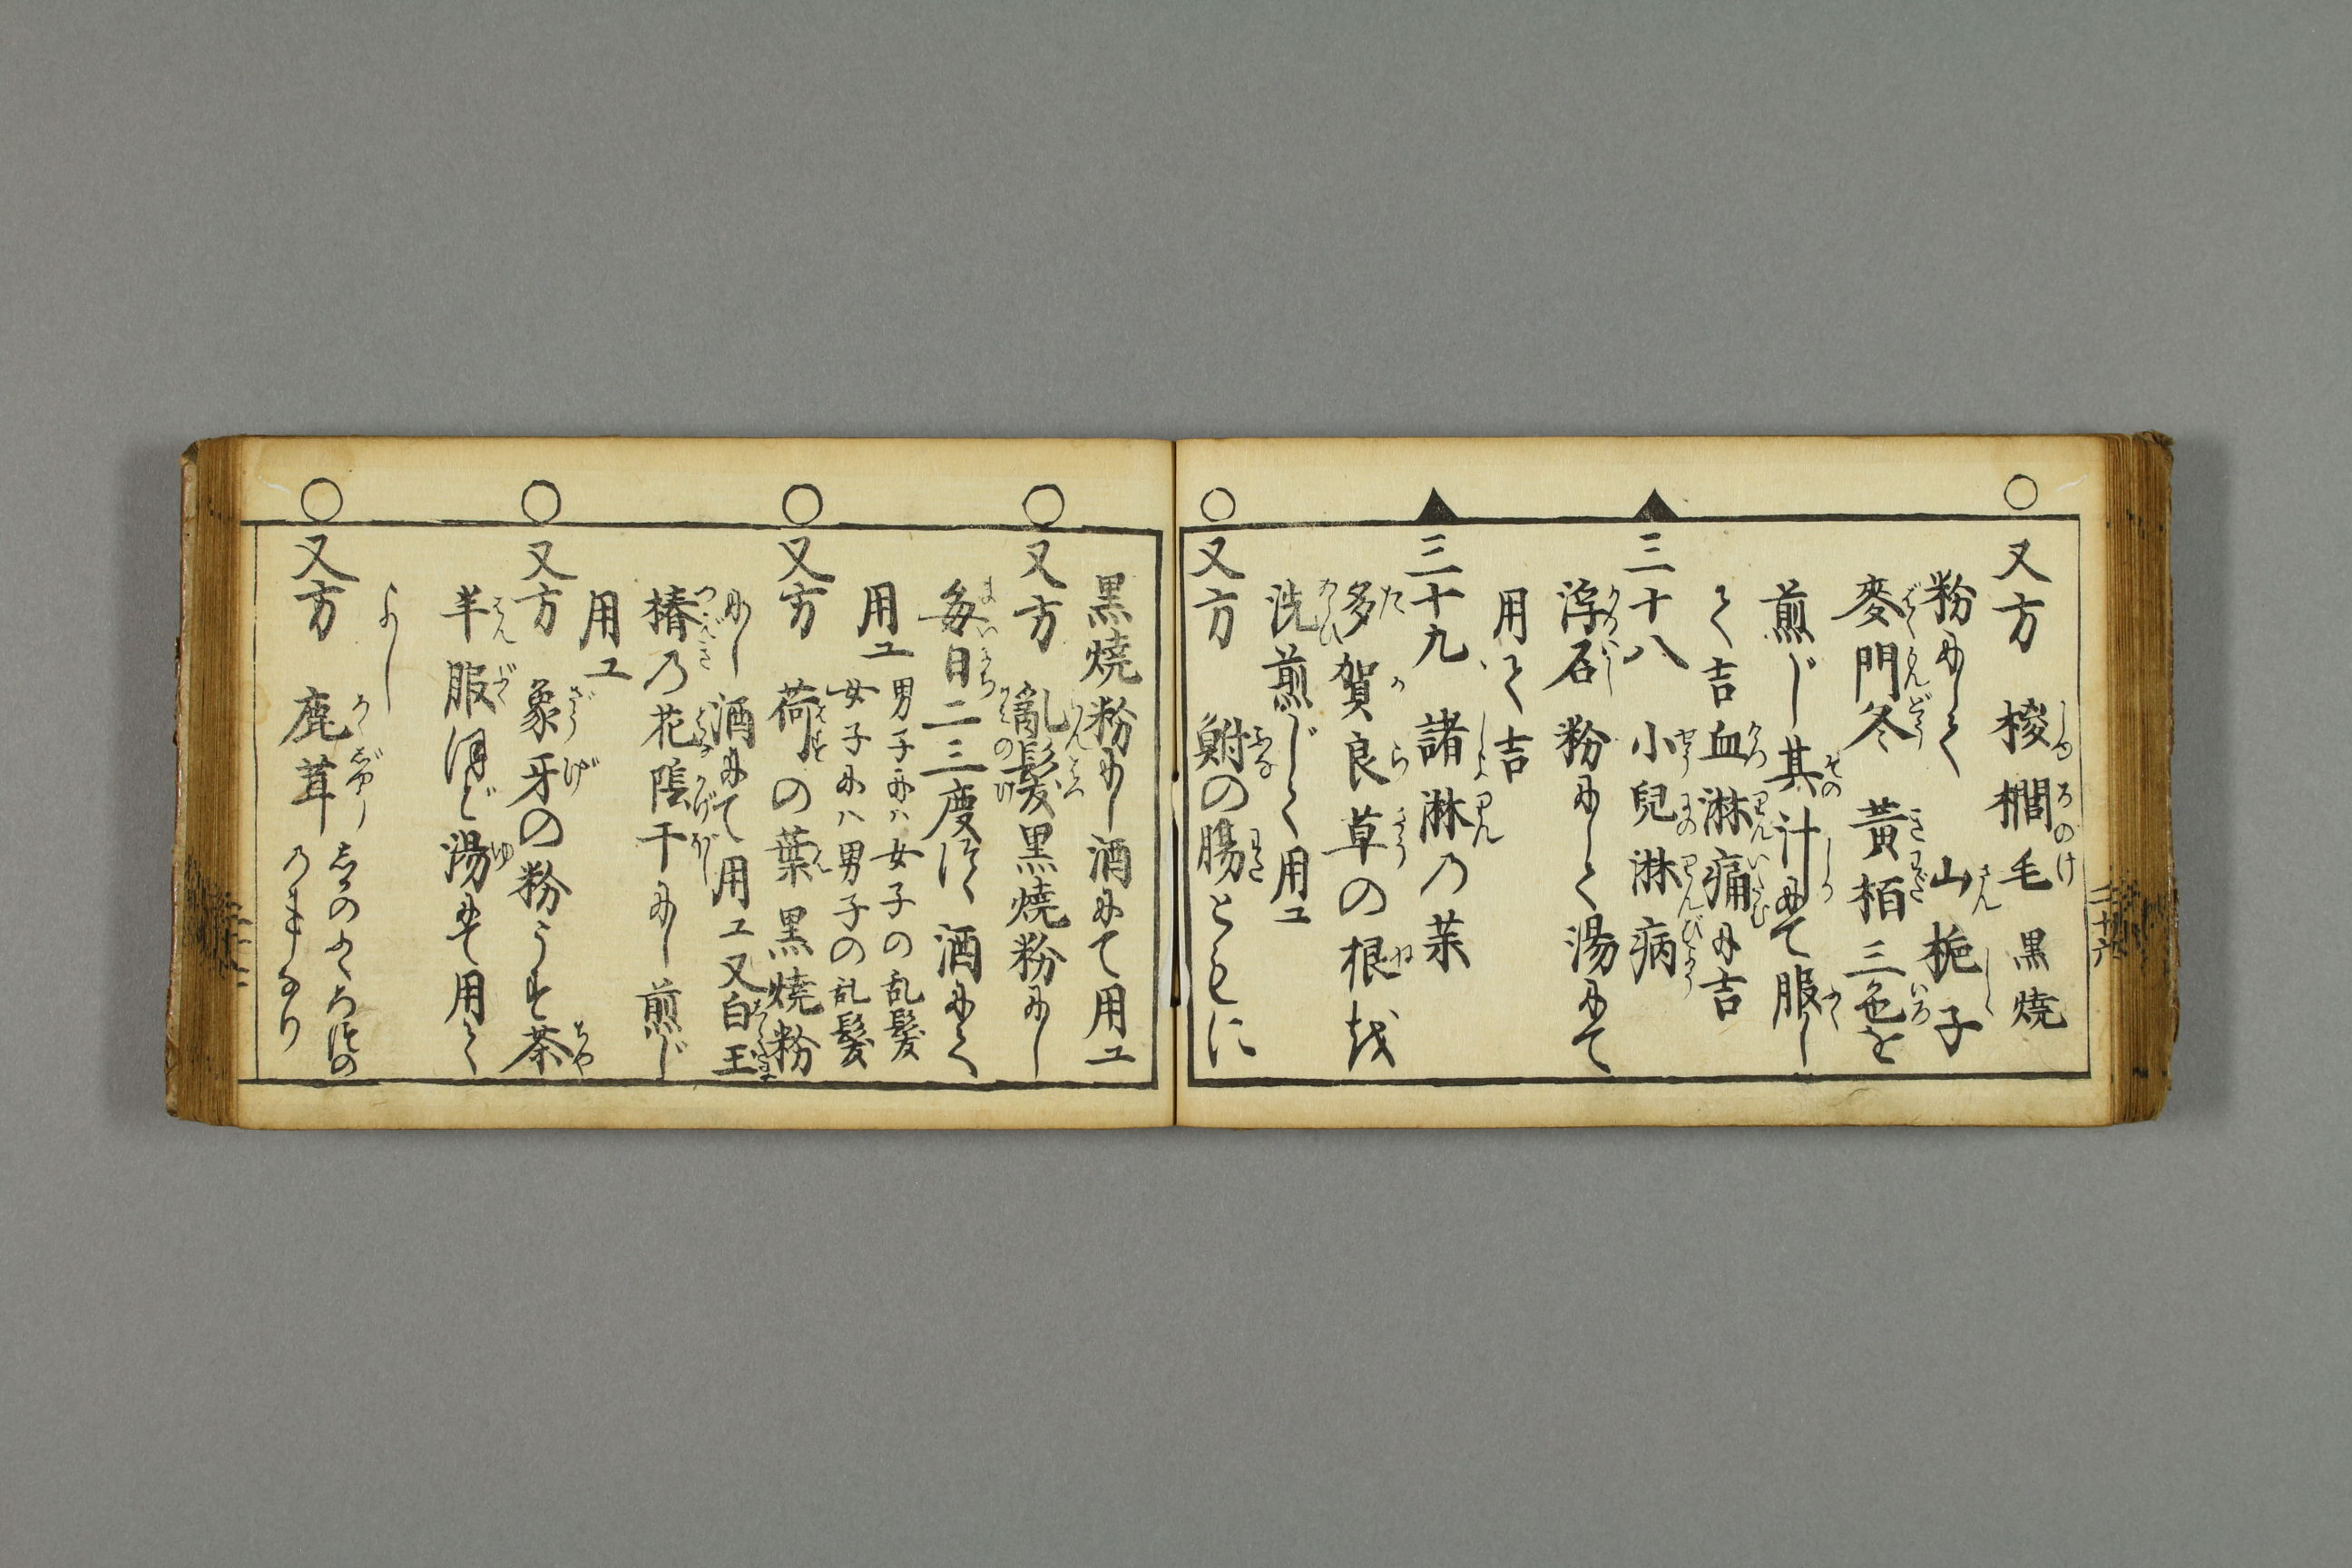 ○又方　椶櫚毛　黒焼
粉にして　山梔子
麥門冬　黄栢三色を
煎じ其汁にて服し
て吉血淋痛に吉
▲三十八　小兒淋病
浮石　粉にして湯にて
用て吉
▲三十九　諸淋乃薬
多賀良草の根を
洗煎じて用ユ
○又方　鮒の腸ともに
二十六
黒焼粉にし酒にて用ユ
○又方　亂髪黒焼粉にし
毎日二三度づゝ酒にて
用ユ男子にハ女子の乱髪
女子にハ男子の乱髪
○又方　荷の葉黒焼粉
にし酒にて用ユ又白玉
椿乃花陰干にし煎じ
用ユ
○又方　象牙の粉うす茶
半服ほど湯にて用て
よし
○又方　鹿茸　しかのふくろづの
乃事なり